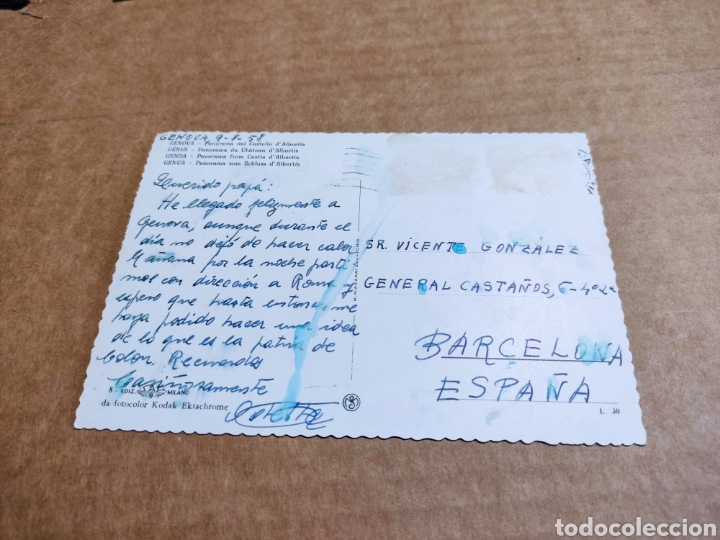 GENOVA, 9-8-58
GENOVA - Panorama dal Castello d'Albertis
GÊNES - Panorama du Château d'Albertis
GENOA - Panorama from Castle d'Albertis
GENUA - Panorama vom Schloss d'Albertis
Querido papá:
He llegado felizmente a
Genova, aunque durante el
día no dejó de hacer calor
Mañana por la noche parti
mos con dirección a Roma y
espero que hasta entonces me
haya podido hacer una idea
de lo que es la patria de
Colon. Recuerdos
Cariñosamente
8 - EDIZ. MILANO
da fotocolor Kodak Ektachrome
SR. VICENTE GONZÁLEZ
GENERAL CASTAÑOS, 6-4º2ª
BARCELONA
ESPAÑA
L. 30
todocoleccion